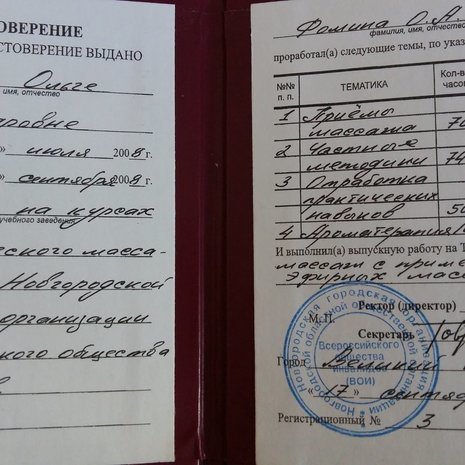 ОВЕРЕНИЕ
СТОВЕРЕНИЕ ВЫДАНО
Ольге
имя, отчество
ровне
» июля 2008 г.
» сентября 2008 г.
на курсах
учебного заведения
еского масса-
Новгородской
организации
кого общества
Фомина О. А.
фамилия, имя, отчество
проработал(а) следующие темы, по указ
№№ п. п. ТЕМАТИКА Кол-в часов
1 Приёмы
массажа
2 Частные
методики 74
3 Отработка
практических
навыков
4 Ароматерапия
И выполнил(а) выпускную работу на Т
массаж с приме
эфирных мас
Ректор (директор)
М.П.
Секретарь
Город Великий
17 » сентяб
Регистрационный № 3
Новгородская городская организация
Новгородской областной общественной организации
Всероссийского
общества
инвалидов
(ВОИ)